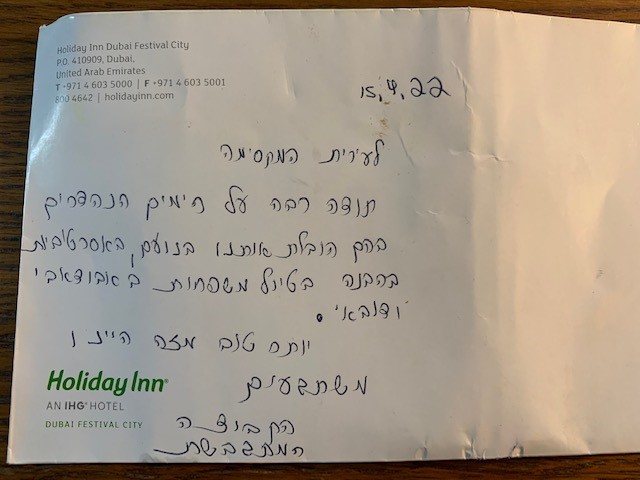 Holiday Inn Dubai Festival City
P.O. 410909, Dubai,
United Arab Emirates
T +971 4 603 5000 | F +971 4 603 5001
800 4642 | holidayinn.com
15,4,22
לעירית המקסימה
תודה רבה על הימים הנהדרים
בהם הובלת אותנו בנועם, באסרטיביות
בהבנה בטיול משפחות באבודאבי
ודובאי.
יותר טוב מזה היינו
משתגעים
הקבוצה
המתגבשת
Holiday Inn®
AN IHG® HOTEL
DUBAI FESTIVAL CITY